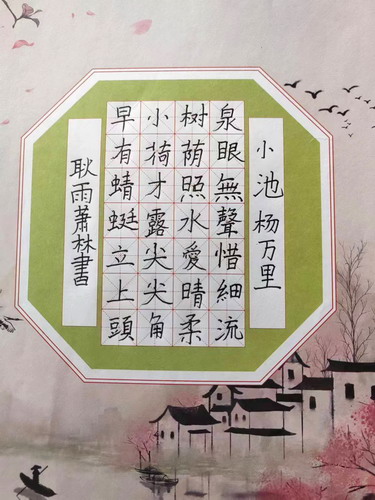 小池 杨万里
泉眼無聲惜細流
树荫照水愛晴柔
小荷才露尖尖角
早有蜻蜓立上頭
耿雨蕭林書